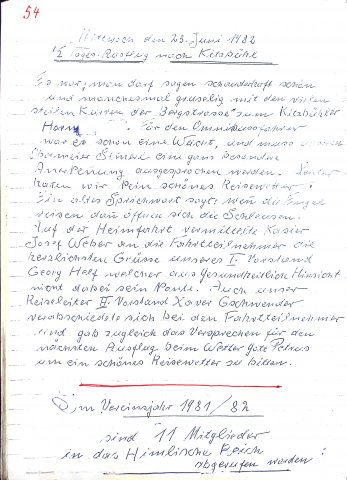 54
Mittwoch den 23. Juni 1982
1/2 Tages-Ausflug nach Kitzbühl
Es war, man darf sagen schauderhaft schön
und manchesmal gruselig mit den vielen
steilen Kurven der Bergstrasse zum Kitzbühler
Horn. Für den Omnibusfahrer
war es schon eine Wucht, und muss
eine ganz besondere
Anerkennung ausgesprochen werden. Leider
hatten wir kein schönes Reisewetter!
Ein altes Sprichwort sagt: wenn die Engel
reisen dann öffnen sich die Schleussen.
Auf der Heimfahrt vermittelte Kasier
Josef Weber an die Fahrtteilnehmer die
herzlichsten Grüsse unseres I. Vorstand
Georg Helf welcher aus Gesundheitlich Hinsicht
nicht dabei sein konnte. Auch unser
Reiseleiter II. Vorstand Xaver Gschwender
verabschiedete sich bei den Fahrtteilnehmer
und gab zugleich das Versprechen für den
nächsten Ausflug beim Wettergott Petrus
um ein schönes Reisewetter zu bitten.
Im Vereinsjahr 1981/82
sind 11 Mitglieder
in das Himlische Reich
abgerufen worden!